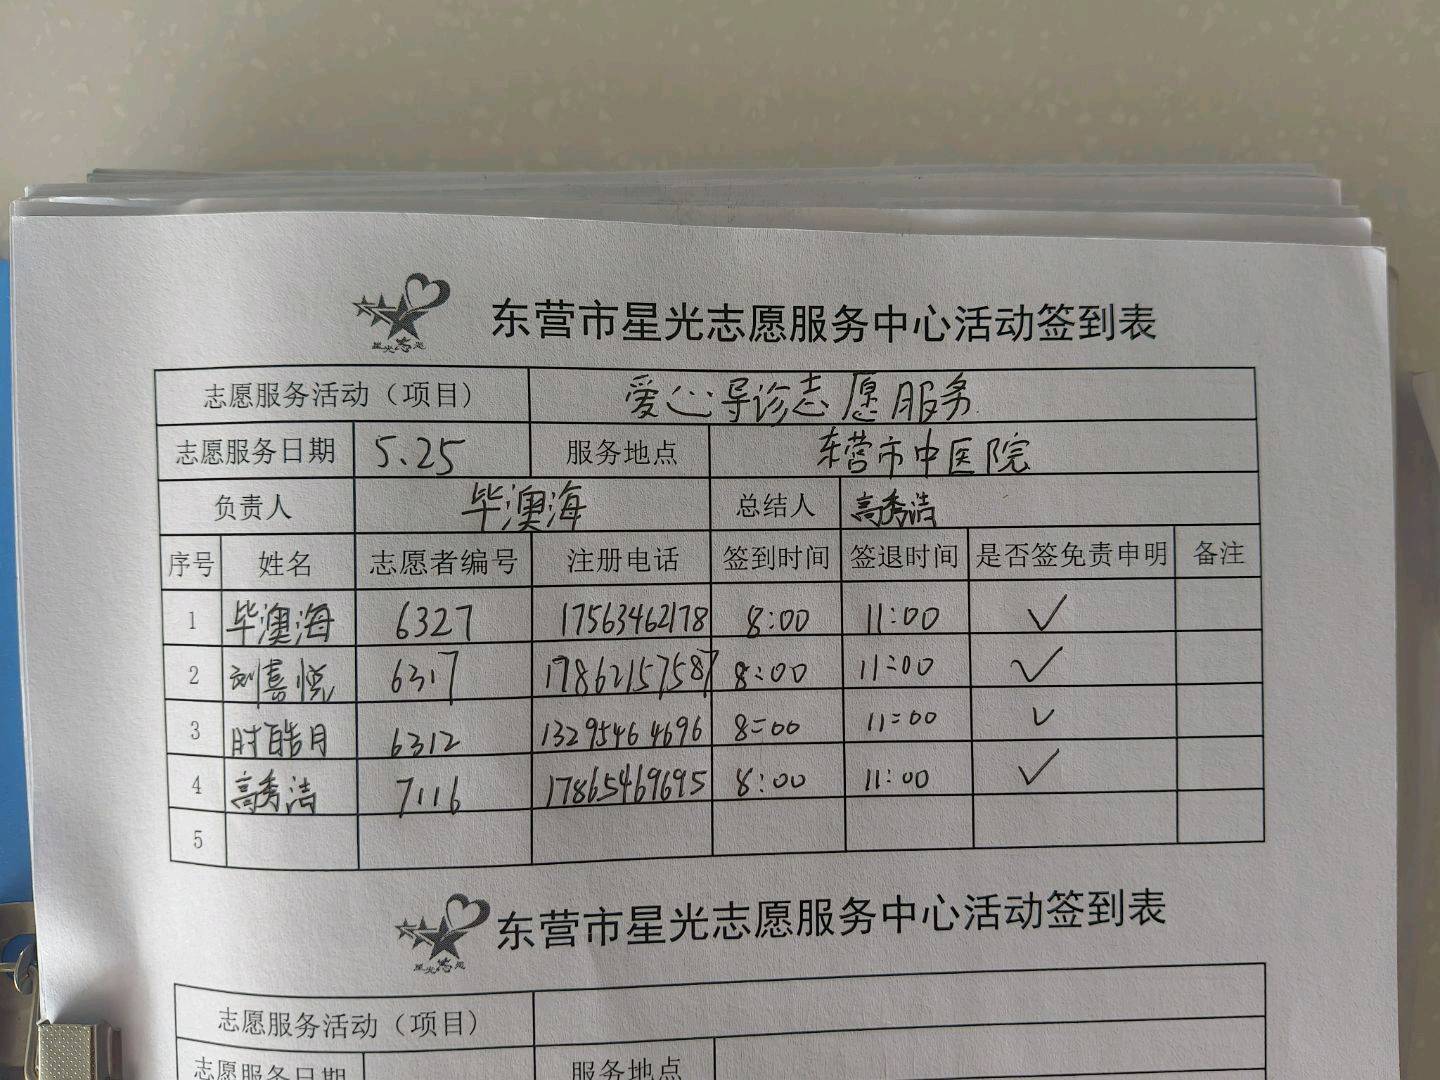 星光志愿
东营市星光志愿服务中心活动签到表
志愿服务活动（项目） 爱心导诊志愿服务
志愿服务日期 5.25 服务地点 东营市中医院
负责人 毕澳海 总结人 高秀洁
序号 姓名 志愿者编号 注册电话 签到时间 签退时间 是否签免责申明 备注
1 毕澳海 6327 17563462178 8:00 11:00 ✓
2 刘喜悦 6317 17862157587 8:00 11:00 ✓
3 时皓月 6312 13295464696 8:00 11:00 ✓
4 高秀洁 7116 17865469695 8:00 11:00 ✓
5
星光志愿
东营市星光志愿服务中心活动签到表
志愿服务活动（项目）
志愿服务日期 服务地点